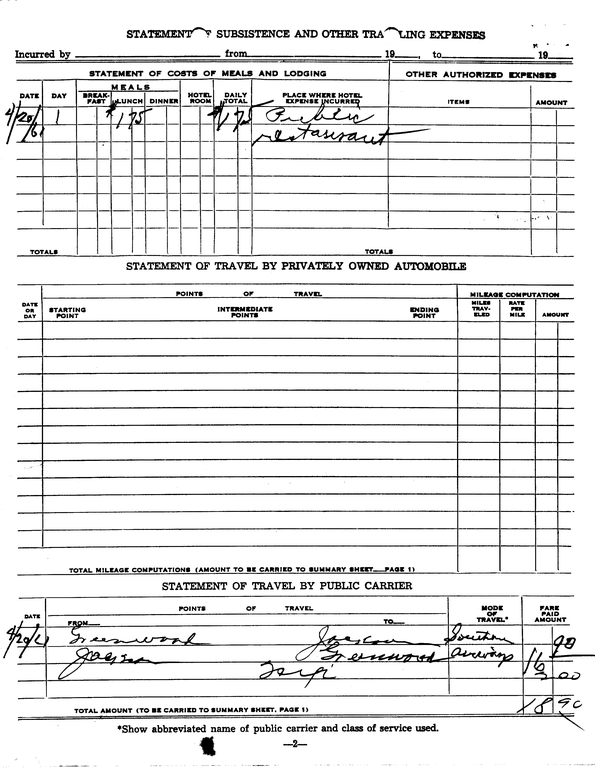 STATEMENT OF SUBSISTENCE AND OTHER TRA LING EXPENSES
Incurred by from 19 , to 19
STATEMENT OF COSTS OF MEALS AND LODGING OTHER AUTHORIZED EXPENSES
DATE DAY MEALS BREAK-FAST LUNCH DINNER HOTEL ROOM DAILY TOTAL PLACE WHERE HOTEL EXPENSE INCURRED ITEMS AMOUNT
4/20/61 1 $1 75 $1 75 Public
restaurant
TOTALS TOTALS
STATEMENT OF TRAVEL BY PRIVATELY OWNED AUTOMOBILE
DATE OR DAY POINTS OF TRAVEL MILEAGE COMPUTATION
STARTING POINT INTERMEDIATE POINTS ENDING POINT MILES TRAV-ELED RATE PER MILE AMOUNT
TOTAL MILEAGE COMPUTATIONS (AMOUNT TO BE CARRIED TO SUMMARY SHEET PAGE 1)
STATEMENT OF TRAVEL BY PUBLIC CARRIER
DATE POINTS OF TRAVEL MODE OF TRAVEL* FARE PAID AMOUNT
FROM TO
4/20/61 Greenwood Jackson Southern
Jackson Greenwood airways 16 90
Taxi 2 00
TOTAL AMOUNT (TO BE CARRIED TO SUMMARY SHEET, PAGE 1) 18 90
*Show abbreviated name of public carrier and class of service used.
—2—